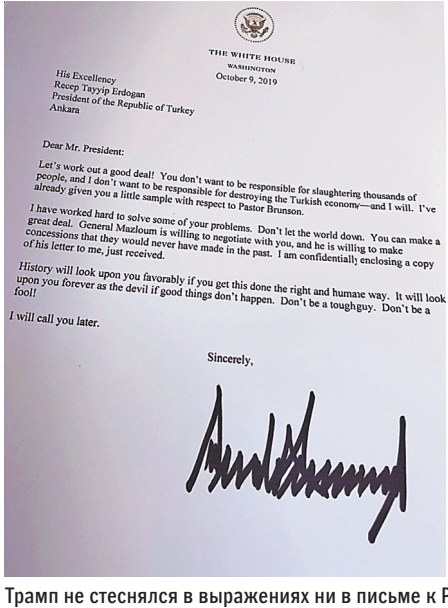 THE WHITE HOUSE
WASHINGTON
October 9, 2019
His Excellency
Recep Tayyip Erdogan
President of the Republic of Turkey
Ankara
Dear Mr. President:
Let's work out a good deal! You don't want to be responsible for slaughtering thousands of
people, and I don't want to be responsible for destroying the Turkish economy—and I will. I've
already given you a little sample with respect to Pastor Brunson.
I have worked hard to solve some of your problems. Don't let the world down. You can make a
great deal. General Mazloum is willing to negotiate with you, and he is willing to make
concessions that they would never have made in the past. I am confidentially enclosing a copy
of his letter to me, just received.
History will look upon you favorably if you get this done the right and humane way. It will look
upon you forever as the devil if good things don't happen. Don't be a tough guy. Don't be a
fool!
I will call you later.
Sincerely,
Трамп не стеснялся в выражениях ни в письме к